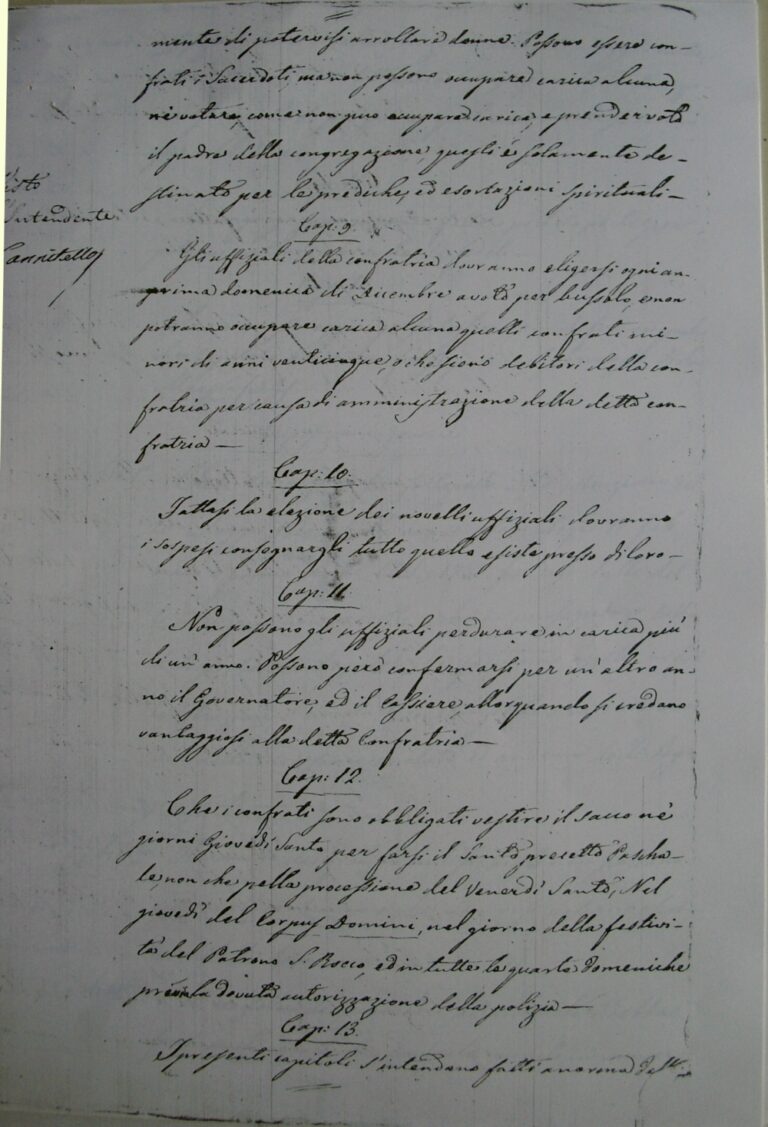 mente di potervisi arrollare donne. Possono essere con-
frati i Sacerdoti, ma non possono occupare carica alcuna,
né votare, come non può occupare carica, e prender voti
il padre della congregazione, quegli é solamente de-
stinato per le prediche, ed esortazioni spirituali—
Visto
L'Intendente
Cannitello
Cap: 9.
Gli uffiziali della confratria dovranno eligersi ogni an-
prima domenica di Dicembre a voto per bussolo, e non
potranno occupare carica alcuna quelli confrati mi-
nori di anni venticinque, o che siano debitori della con-
fratria per causa di amministrazione della detta con-
fratria—
Cap: 10.
Fattasi la elezione dei novelli uffiziali dovranno
i sospesi consegnargli tutto quello esiste presso di loro—
Cap: 11.
Non possono gli uffiziali perdurare in carica più
di un' anno. Possono però confermarsi per un' altro an-
no il Governatore, ed il Cassiere, allorquando si credano
vantaggiosi alla detta Confratria—
Cap: 12.
Che i confrati sono obbligati vestire il sacco né
giorni Giovedì Santo per farsi il Santo precetto Pascha-
le non che pella processione del Venerdì Santo, Nel
giovedì del Corpus Domini, nel giorno della festivi-
tà del Patrono S. Rocco, ed in tutte le quarte domeniche
previa la dovuta autorizzazione della polizia—
Cap: 13.
I presenti capitoli s'intendano fatti a norma del